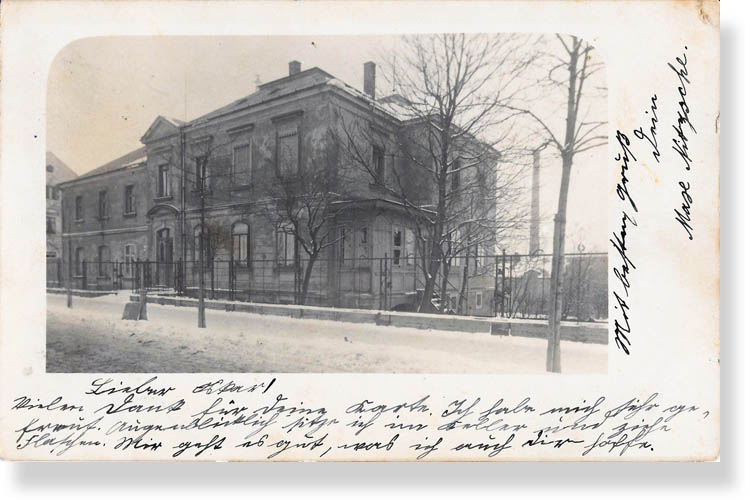 Lieber Oskar!
Vielen Dank für Deine Karte. Ich habe mich sehr ge-
freut. Augenblicklich sitze ich im Keller und ziehe
Flaschen. Mir geht es gut, was ich auch Dir hoffe.
Mit bestem Gruß
Dein
Max Nitzsche.